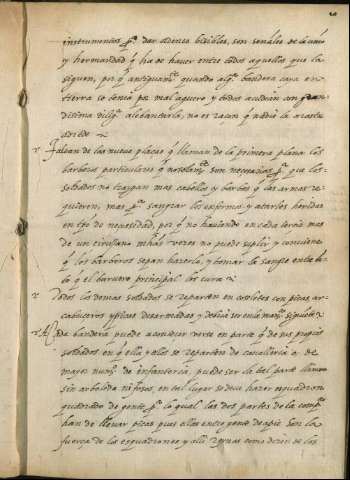 instrumentos pᵃ dar ... son señales de la union
y hermandad q̃ ha de haver entre todos aquellos que la
siguen, por q̃ antiguamᵗᵉ quando algᵃ bandera caya en
tierra se tenia por mal aguero y todos acudian con gran
dissima diligᵃ a lebantarla, no es raçon q̃ nadie la arastre
adrede
Faltan de las nueve plaças q̃ llaman de la primera plana los
barberos particulares q̃ son necesarios pᵃ que los
soldados no traygan mas cabellos y barbas q̃ las armas re-
quieren, mas pᵃ sangrar los enfermos y atarles heridas
en tpo de necesidad, por q̃ no haviendo en cada tercio mas
de un cirujano muchas vezes no puede suplir y conviene
q̃ los barberos sepan hazerla, y tomar la sangre entre
q̃ el barvero principal los cura
Todos los demas soldados se reparten en coseletes con picas ar-
cabuceros y picas desarmadas y debria ser en la manᵃ siguiente
Cada bandera puede acontecer verse en parte q̃ de sus propios
soldados en q̃ ella y ellos se reparten de cavalleria o de
mayor numᵒ de infanteria, puede ser la tal parte llana
sin arboleda ni fosos, en tal lugar se deve hazer esquadron
quadrado de gente pᵃ lo qual las dos partes de la compᵃ
han de llevar picas pues ellas entre gente de a pie son la
fuerça de los esquadrones y alli como dizen de las